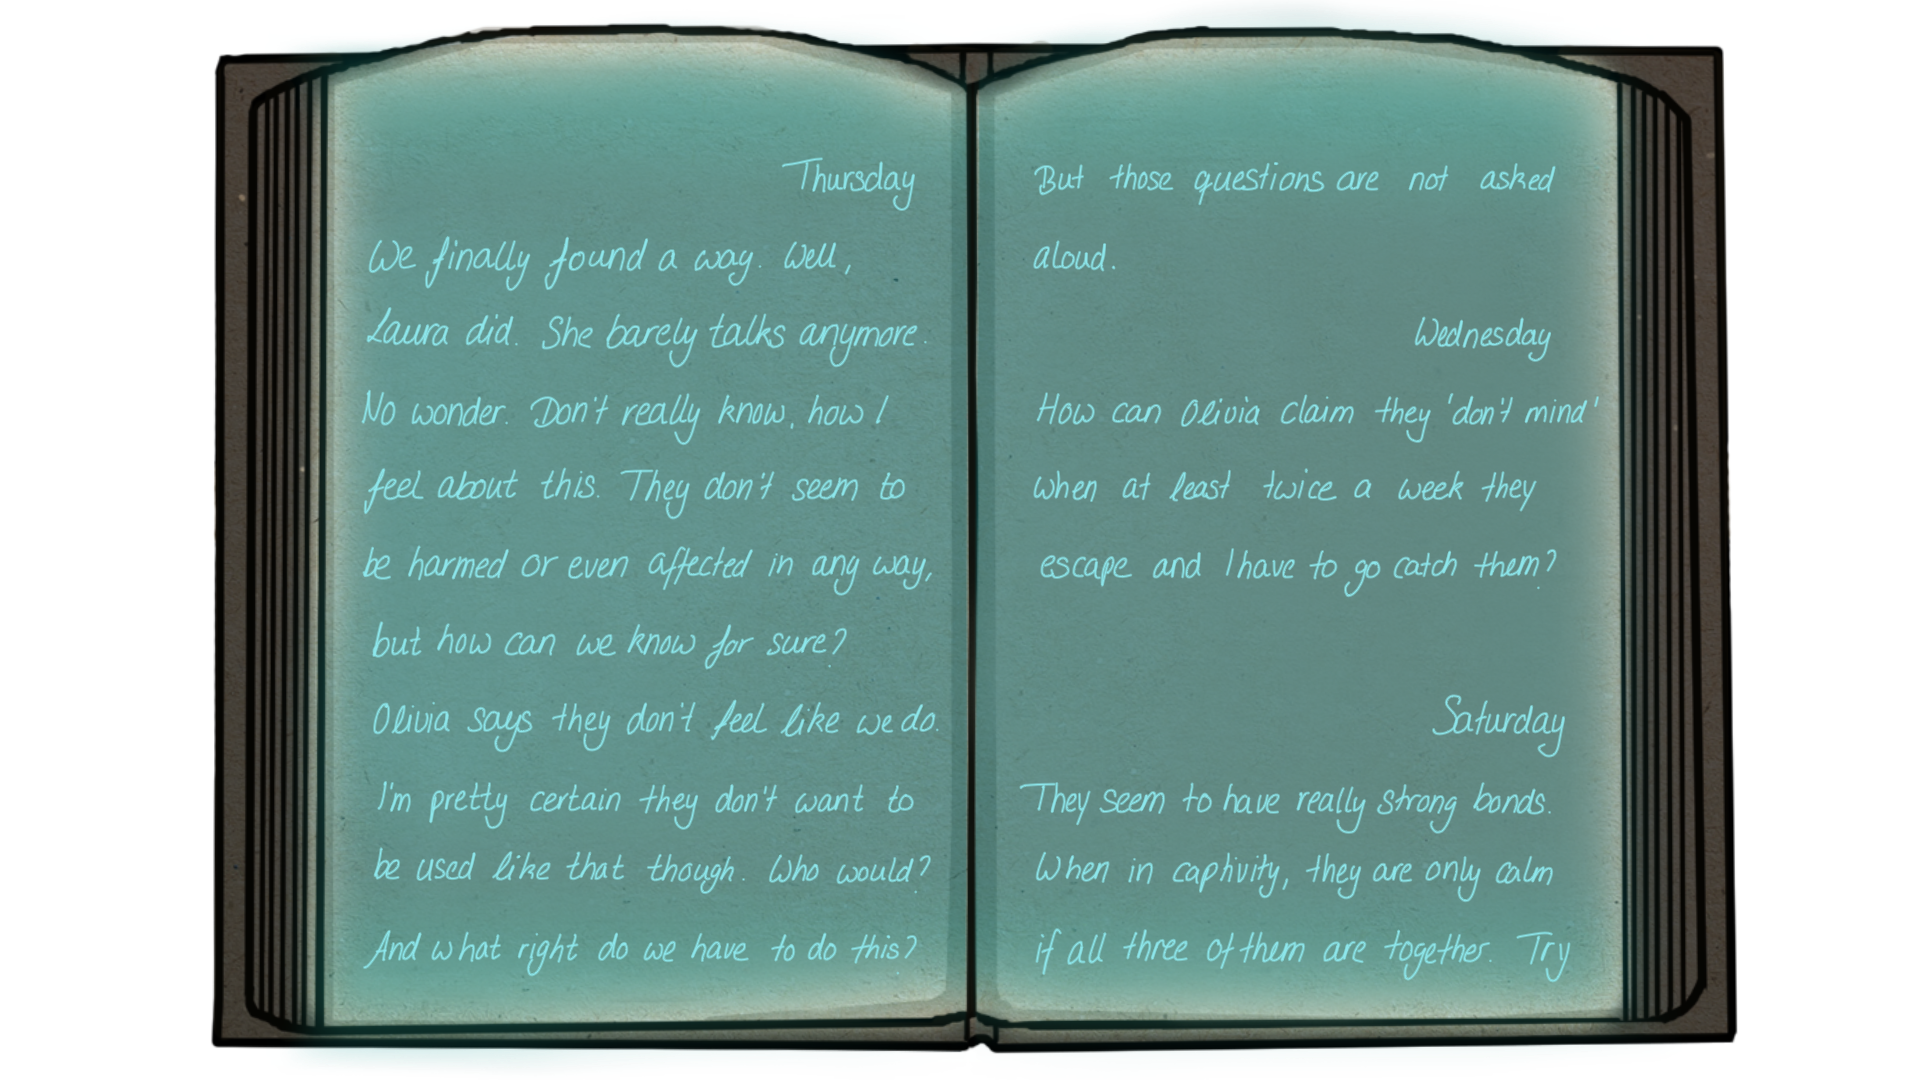 Thursday
We finally found a way. Well,
Laura did. She barely talks anymore.
No wonder. Don't really know, how I
feel about this. They don't seem to
be harmed or even affected in any way,
but how can we know for sure?
Olivia says they don't feel like we do.
I'm pretty certain they don't want to
be used like that though. Who would?
And what right do we have to do this?
But those questions are not asked
aloud.
Wednesday
How can Olivia claim they 'don't mind'
when at least twice a week they
escape and I have to go catch them?
Saturday
They seem to have really strong bonds.
When in captivity, they are only calm
if all three of them are together. Try